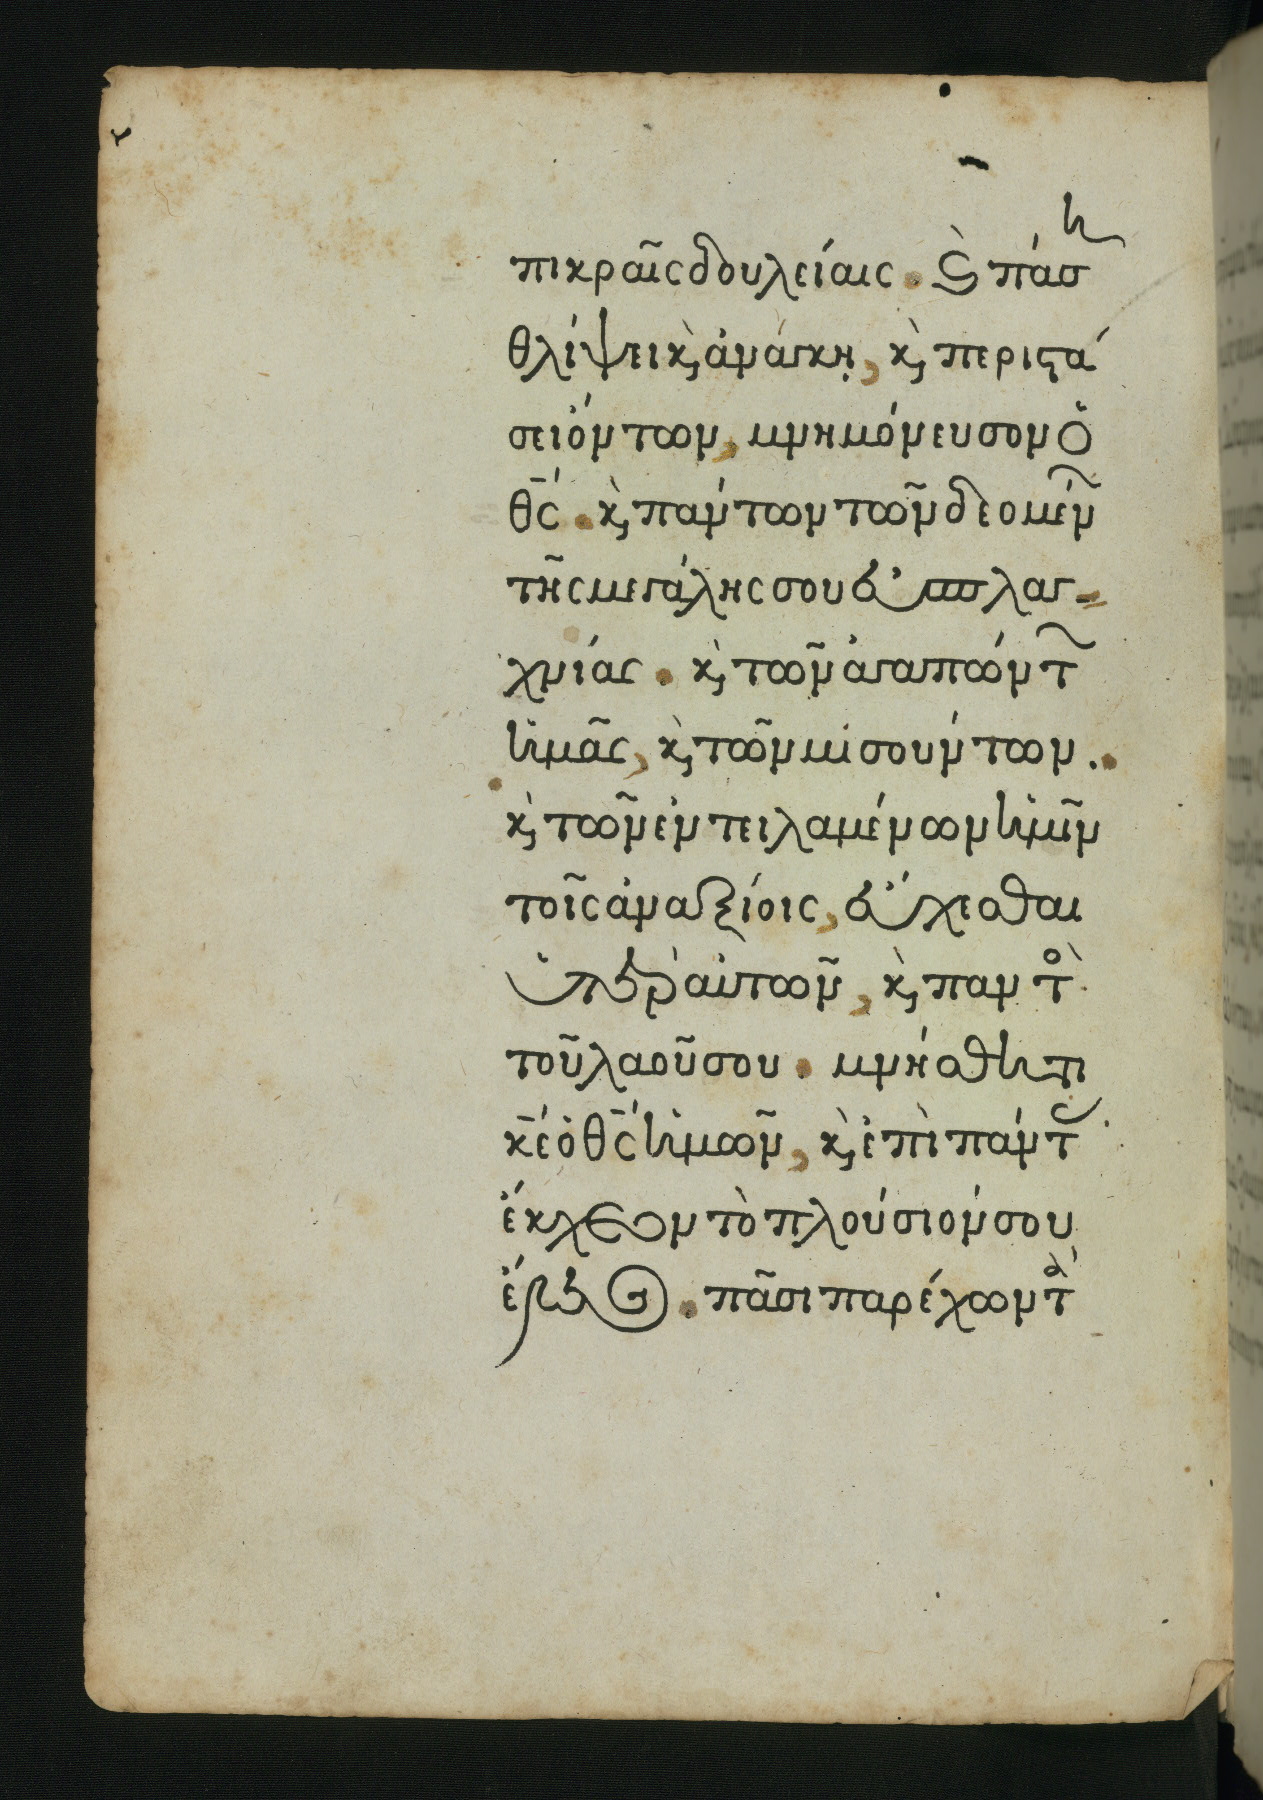 πικραῖς δουλείαις. καὶ πάση
θλίψει κ, ἀνάγκη, κ, περιστά
σει ὄντων, μνημόνευσον ὁ
θς. κ, πάντων τῶν δεομέν
τῆς μεγάλης σου εὐσπλαγ-
χνίας. κ, τῶν ἀγαπώντ
ἡμᾶς, κ, τῶν μισούντων.
κ, τῶν ἐντειλαμένων ἡμῖν
τοῖς ἀναξίοις, εὔχεσθαι
ὑπὲρ αὐτῶν, κ, παντὸ
τοῦ λαοῦ σου. μνήσθητι
κε ὁ θς ἡμῶν, κ, ἐπὶ πάντ
ἔκχεον τὸ πλούσιόν σου
ἔλεος. πᾶσι παρέχων τὰ